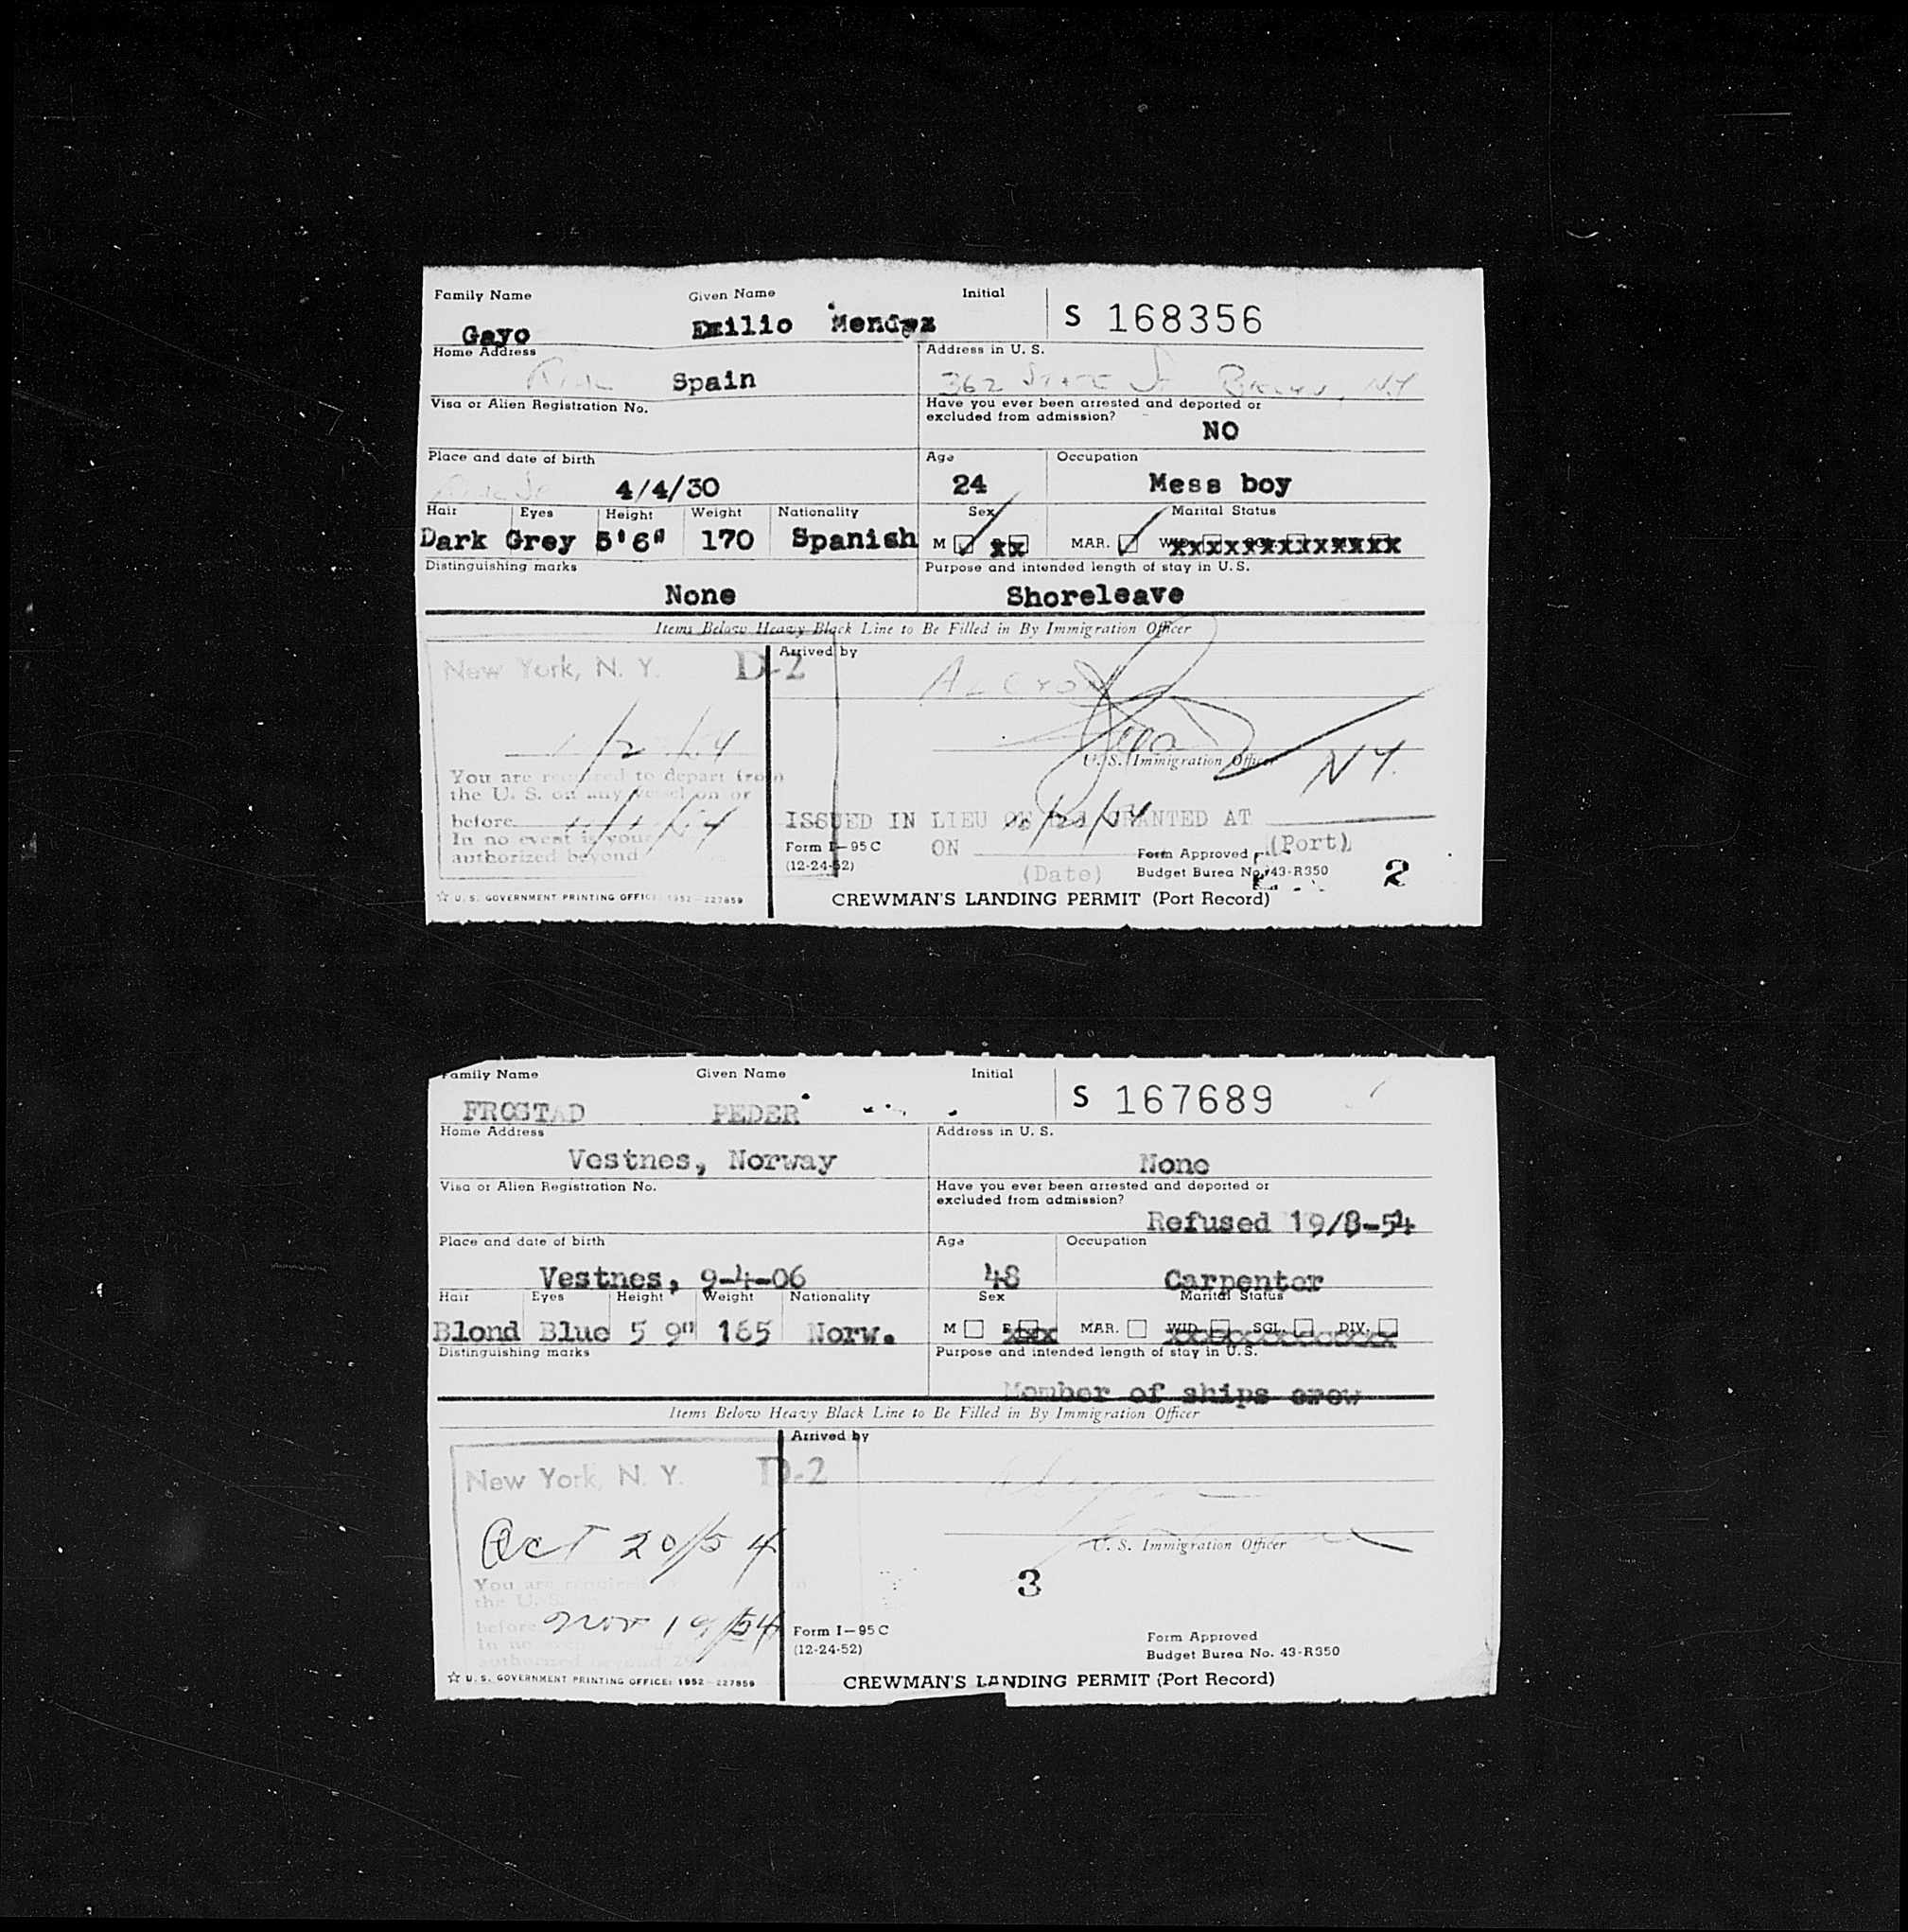 Family Name Given Name Initial S 168356
Gayo Emilio Mendez
Home Address Address in U. S.
Spain 362 State St
Visa or Alien Registration No. Have you ever been arrested and deported or
excluded from admission?
NO
Place and date of birth Age Occupation
4/4/30 24 Mess boy
Hair Eyes Height Weight Nationality Sex Marital Status
Dark Grey 5'6" 170 Spanish M MAR.
Distinguishing marks Purpose and intended length of stay in U.S.
None Shoreleave
Items Below Heavy Black Line to Be Filled in By Immigration Officer
New York, N. Y. D-2 Arrived by
U. S. Immigration Officer N.Y.
You are required to depart from
the U. S. on any vessel on or
before
In no event is your
authorized beyond
ISSUED IN LIEU GRANTED AT
(Port)
ON
(Date)
Form I-95 C
(12-24-52)
Form Approved
Budget Burea No. 43-R350
2
☆ U. S. GOVERNMENT PRINTING OFFICE: 1952 227859
CREWMAN'S LANDING PERMIT (Port Record)
Family Name Given Name Initial S 167689
FROSTAD PEDER
Home Address Address in U. S.
Vestnes, Norway None
Visa or Alien Registration No. Have you ever been arrested and deported or
excluded from admission?
Refused 19/8-54
Place and date of birth Age Occupation
Vestnes, 9-4-06 48 Carpenter
Hair Eyes Height Weight Nationality Sex Marital Status
Blond Blue 5 9" 165 Norw. M F MAR. WID. SGL. DIV.
Distinguishing marks Purpose and intended length of stay in U.S.
Member of ships crew
Items Below Heavy Black Line to Be Filled in By Immigration Officer
New York, N. Y. D-2 Arrived by
Oct 20/54
U. S. Immigration Officer
You are required
the U. S.
before Nov 19/54
3
Form I-95 C
(12-24-52)
Form Approved
Budget Burea No. 43-R350
☆ U. S. GOVERNMENT PRINTING OFFICE: 1952 227859
CREWMAN'S LANDING PERMIT (Port Record)